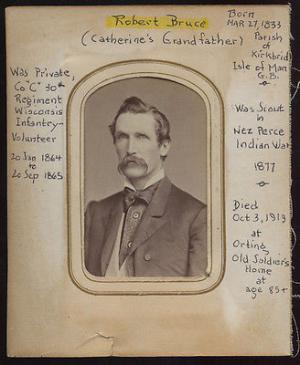 Robert Bruce
(Catherine's Grandfather)
Born
MAR 27, 1833
Parish
of
Kirkbrid
Isle of Man
G.B.
Was Private,
Co "C" 30th
Regiment
Wisconsin
Infantry-
Volunteer
20 Jan 1864
to
20 Sep 1865
Was Scout
in
Nez Perce
Indian War
1877
Died
Oct 3, 1919
at
Orting
Old Soldier's
Home
at
age 85+